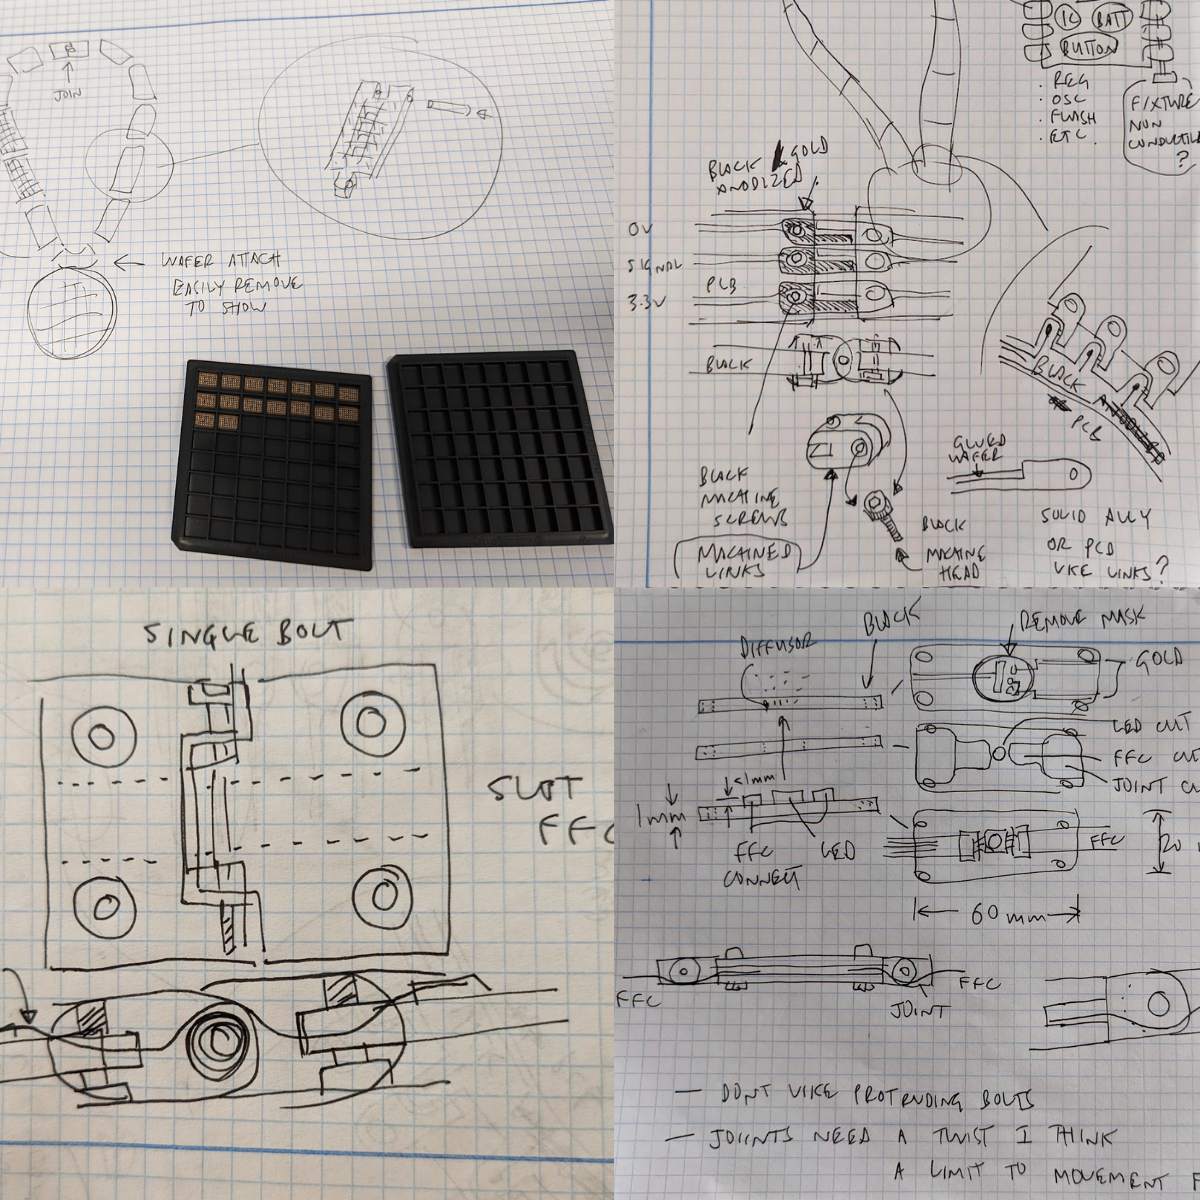 JOIN
WAFER ATTACH
EASILY REMOVE
TO SHOW
IC BATT
BUTTON
. REG
. OSC
. FLASH
. ETC.
FIXTURE
NON
CONDUCTIVE
?
BLACK & GOLD
ANODIZED
0V
SIGNAL
PCB
3.3V
BLACK
BLACK ANODIZED
PCB
GLUED
WAFER
BLACK
MACHINE
SCREWS
MACHINED
LINKS
BLACK
MACHINE
HEAD
SOLID ALLY
OR PCB
LIKE LINKS?
SINGLE BOLT
SLOT
FFC
DIFFUSOR
BLACK
REMOVE MASK
GOLD
LED CUT
FFC CU
JOINT CU
<1mm
1mm
FFC
CONNECT
LED
FFC
20
60mm
FFC
FFC
JOINT
— DONT LIKE PROTRUDING BOLTS
— JOIINTS NEED A TWIST I THINK
A LIMIT TO MOVEMENT